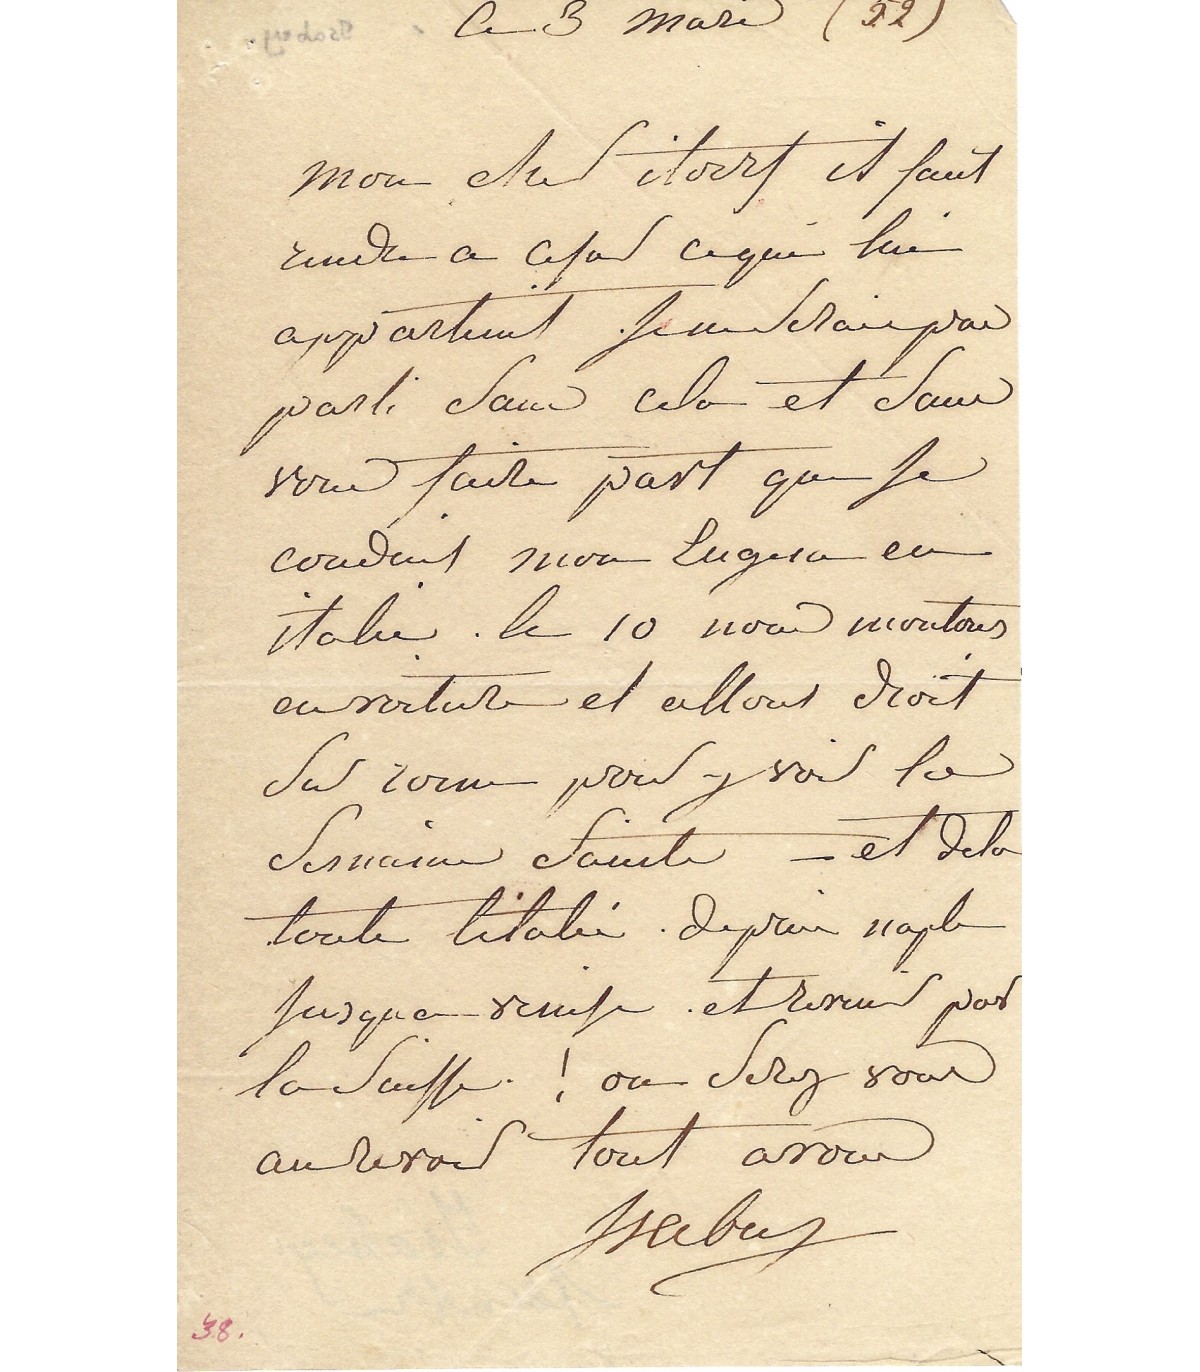 ce 3 mars (52)
mon cher itorf il faut
rendre a cesar ce qui lui
appartient Je ne serais pas
parti sans cela et sans
vous faire part que Je
conduit mon Eugene en
italie . le 10 nous montons
en voiture et allons droit
sur rome pour y voir la
semaine Sainte – et dela
toute litalie . depuis naple
Jusqua venise . et revenir par
la Suisse . ! ou serez vous
au revoir tout a vous
Isabey
38.